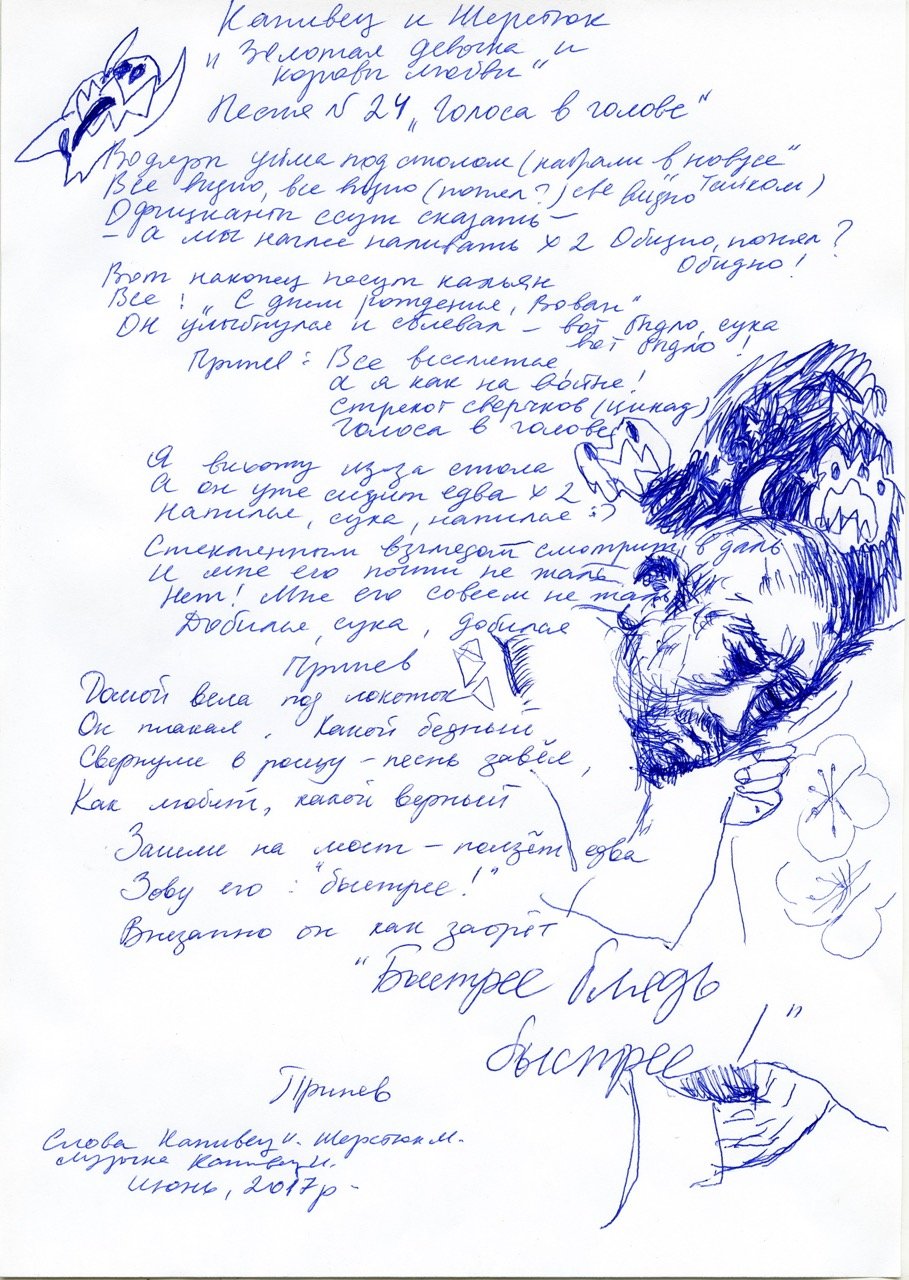 Капивец и Шерстюк
"Золотая девочка и
коровы любви"
Песня № 24 "Голоса в голове"
Водяры уйма под столом (набрали в "новусе"
Все видно, все видно (понял?) све видно Тайком)
Официанты ссут сказать –
– а мы наглее наливать х 2 Обидно, понял?
Обидно!
Вот наконец несут кальян
Все: "С днем рождения, Вован"
Он улыбнулся и сблевал – вот быдло, сука
вот быдло!
Припев: Все веселятся,
а я как на войне!
Стрекот сверчков (цикад)
Голоса в голове
Я выхожу из-за стола
А он уже сидит едва х 2
Напилася, сука, напилася :)
Стеклянным взглядом смотрит в даль
И мне его почти не жаль
Нет! Мне его совсем не жаль
Добилася, сука, добилася
Припев
Домой вела под локоток
Он плакал. Какой бедный
Свернули в рощу – песнь завёл,
Как любит, какой верный
Зашли на мост – ползёт едва
Зову его: "быстрее!"
Внезапно он как заорёт
"Быстрее блядь
быстрее!"
Припев
Слова Капивец И. Шерстюк М.
Музыка Капивец И.
Июнь, 2017р-